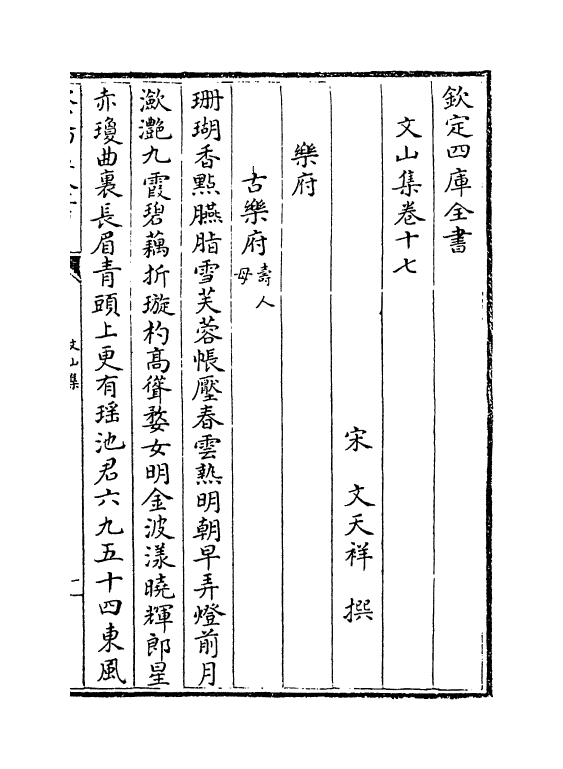 欽定四庫全書
文山集卷十七
宋 文天祥 撰
樂府
古樂府 壽人母
珊瑚香點臙脂雪芙蓉帳壓春雲熱明朝早弄燈前月
瀲灔九霞碧藕折璇杓高聳婺女明金波漾曉輝郎星
赤瓊曲裏長眉青頭上更有瑶池君六九五十四東風
文山集
一